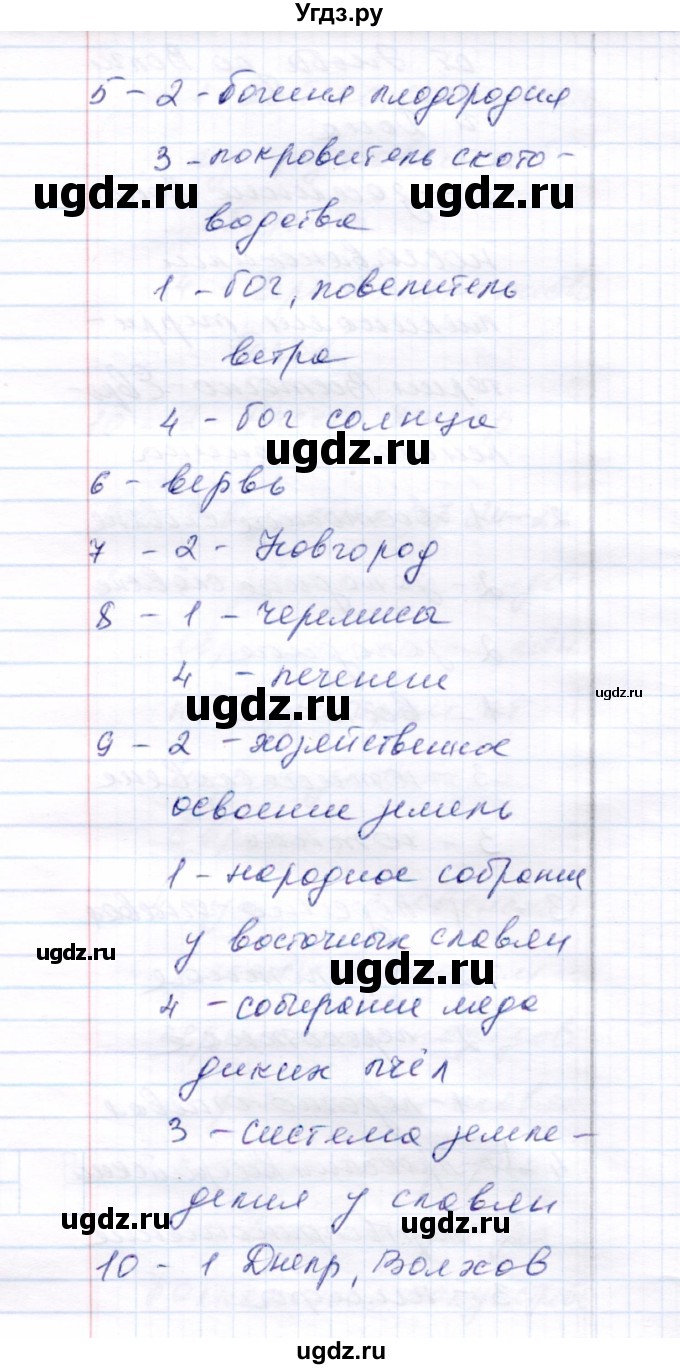 Угдз.ру
5 - 2 - богиня плодородия
3 - покровитель ското-
ugdz.ru
ugdz.ru
водства
1 - бог, повелитель
ветра
4 - бог солнца
ugdz.ru
6 - вервь
7 - 2 - Новгород
8 - 1 - черемисы
4 - печенеги
ugdz.ru
ugdz.ru
9 - 2 - хозяйственное
освоение земель
1 - народное собрание
у восточных славян
ugdz.ru
ugdz.ru
4 - собирание мёда
диких пчёл
3 - система земле-
делия у славян
ugdz.ru
ugdz.ru
10 - 1 Днепр, Волхов
ugdz.ru